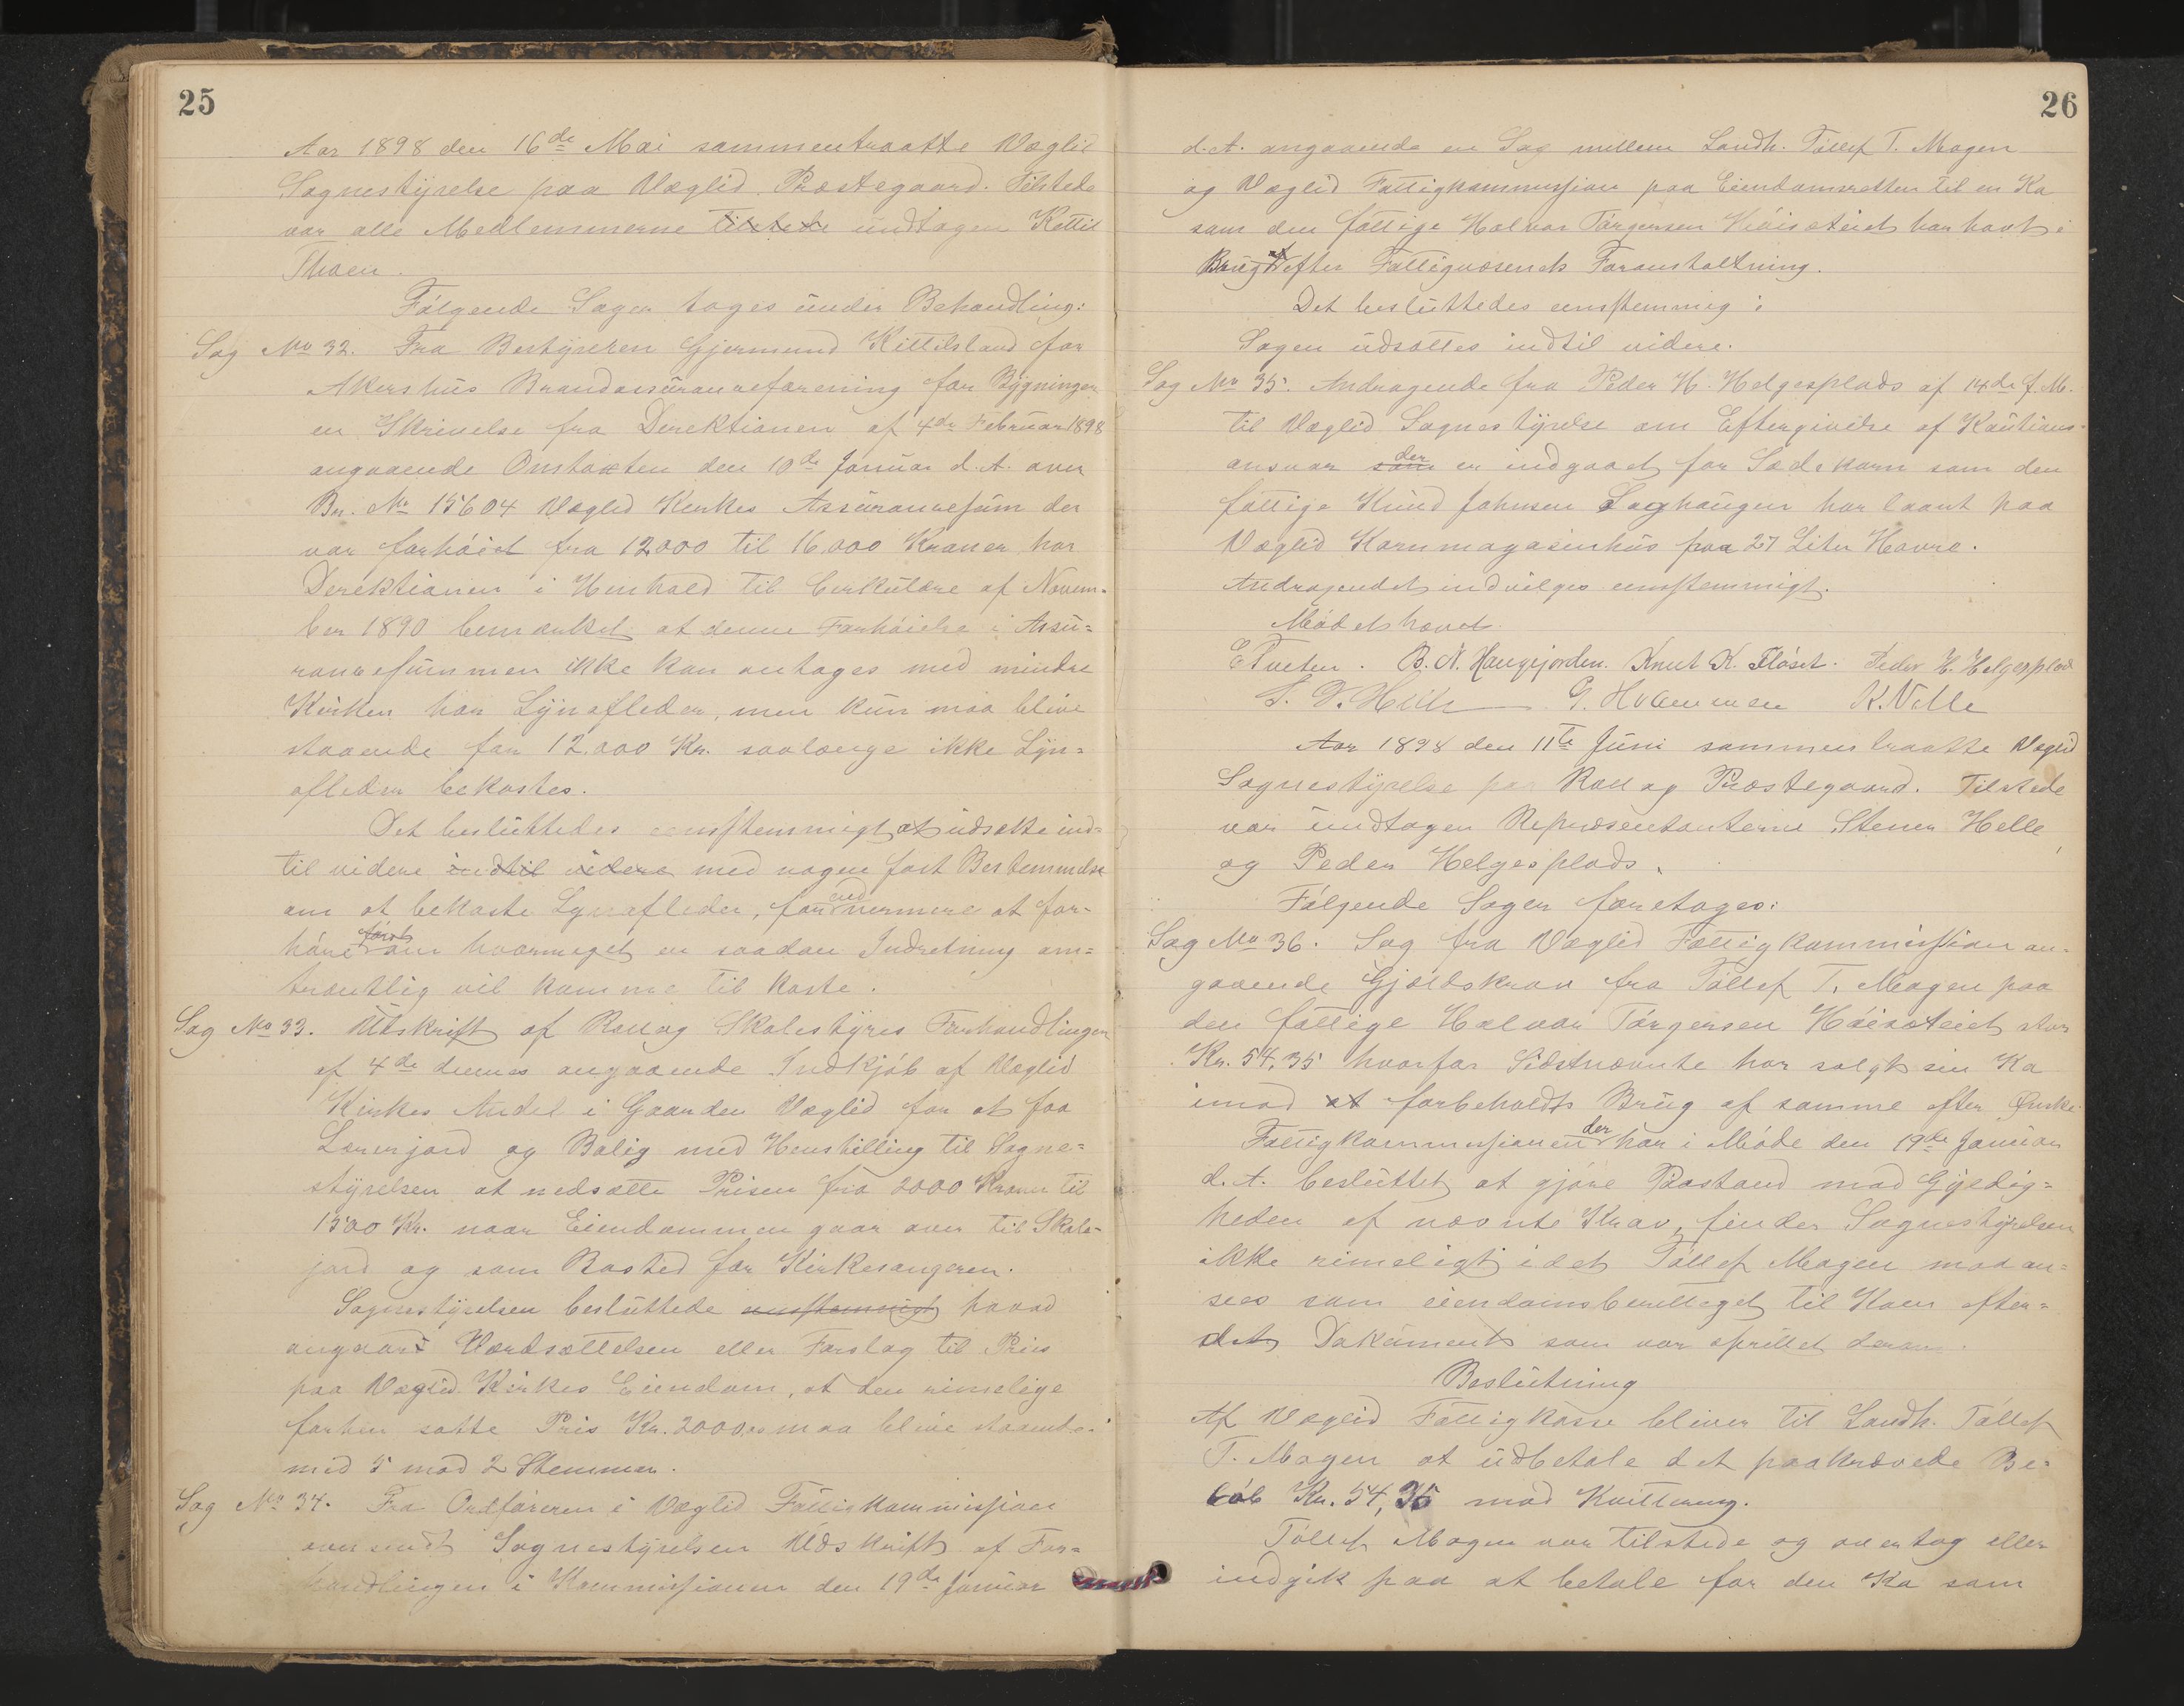 25
Aar 1898 den 16de Mai sammentraatte Væglid
Sognestyrelse paa Væglid Præstegaard. Tilstede
var alle Medlemmerne tilstede undtagen Kittil
Thoen.
Følgende Sager toges under Behandling:
Sag No 32. Fra Bestyreren Gjermund Kittilsland for
Akershus Brandassuranceforening for Bygninger
en Skrivelse fra Direktionen af 4de Februar 1898
angaaende Omtaxten den 10de Januar d.A. over
Br. No 15604 Væglid Kirkes Assurancesum der
var forhøiet fra 12000 til 16,000 Kroner har
Direktionen i Henhold til Cirkulære af Novem-
ber 1890 bemærket at denne Forhøielse i Assu=
rancesummen ikke kan antages med mindre
Kirken har Lynafleder, men kun maa blive
staaende for 12,000 Kr. saalænge ikke Lyn=
afleder bekostes.
Det besluttedes eenstemmigt at udsætte ind=
til videre indtil videre med nogen fast Bestemmelse
om at bekoste Lynafleder, for ved nermere at for-
høre først om hvormeget en saadan Indretning om=
trentlig vil komme til koste.
Sag No 33. Udskrift af Rollag Skolestyres Forhandlinger
af 4de dennes angaaende Indkjøb af Væglid
Kirkes Andel i Gaarden Væglid for at faa
Lærerjord og Bolig med Henstilling til Sogne=
styrelsen at nedsætte Prisen fra 2000 Kroner til
1500 Kr. naar Eiendommen gaar over til Skole-
jord og som Bosted for Kirkesangeren.
Sognestyrelsen besluttede eenstemmigt hvad
angaar Værdsættelsen eller Forslag til Pris
paa Væglid Kirkes Eiendom, at den rimelige
forhen satte Pris Kr. 2000,00 maa blive staaende
med 5 mod 2 Stemmer.
Sag No 34. Fra Ordføreren i Væglid Fattigkommission
oversendt Sognestyrelsen Udskrift af For=
handlingen i Kommissionen den 19de Januar
26
d.A. angaaende en Sag mellem Landh. Tøllef T. Mogen
og Væglid Fattigkommission paa Eiendomsretten til en Ko
som den fattige Halvor Torgersen Høisæteiet har havt i
Brug efter Fattigvæsenets Foranstaltning.
Det besluttedes eenstemmig:
Sagen udsættes indtil videre.
Sag No 35. Andragende fra Peder H. Helgesplads af 14de f.M.
til Væglid Sognestyrelse om Eftergivelse af Kautions-
ansvar som der er indgaaet for Sædekorn som den
fattige Knud Johnsen Laghaugen har laant paa
Væglid Kornmagasinhus paa 27 Liter Havre.
Andragendet indvilges eenstemmigt.
Mødet hævet.
E Tveten. B. N. Haugjorden. Knut K. Fløset. Peder H. Helgesplads
S. O. Helle G. Holmmen K. Vølle
Aar 1898 den 11te Juni sammentraatte Væglid
Sognestyrelse paa Rollag Præstegaard. Tilstede
var undtagen Repræsentanterne Stener Helle
og Peder Helgesplads.
Følgende Sager foretages:
Sag No 36. Sag fra Væglid Fattigkommission an=
gaaende Gjældskrav fra Tøllef T. Mogen paa
den fattige Halvor Torgersen Høisæteiet stor
Kr. 54,35 hvorfor Sidstnævnte har solgt sin Ko
imod at forbeholdt Brug af samme efter Ønske.
Fattigkommissionen der har i Møde den 19de Januar
d.A. besluttet at gjøre Paastand mod Gyldig=
heden af nævnte Krav, finder Sognestyrelsen
ikke rimeligt idet Tøllef Mogen maa an=
sees som eiendomsberettiget til Koen efter=
det Dokument som var oprettet derom.
Beslutning
Af Væglid Fattigkasse bliver til Landh. Tøllef
T. Mogen at udbetale det paakrævede Be=
løb Kr. 54,35 mod Kvittering.
Tøllef Mogen var tilstede og overtog eller
indgik paa at betale for den Ko som